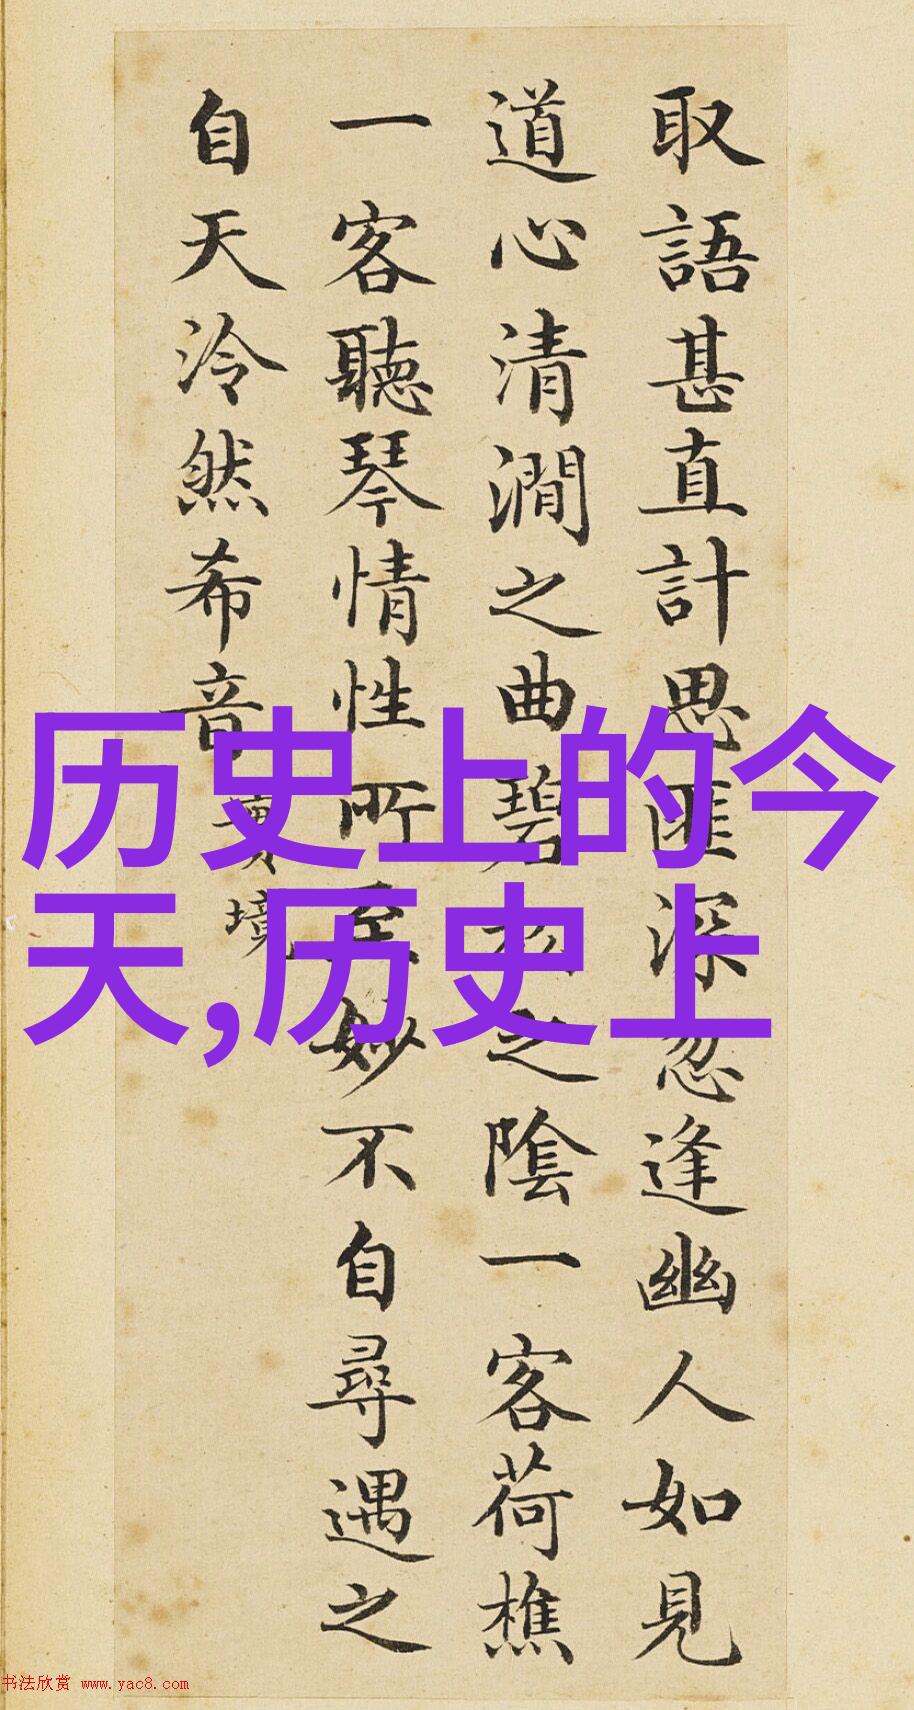 取語甚直計思匪深忽逢幽人如見
道心清澗之曲碧之陰一客荷樵
一客聽琴情性所至妙不自尋遇之
自天泠然希音
實境
历史上的今
天,历史上
书法欣赏 www.yac8.com